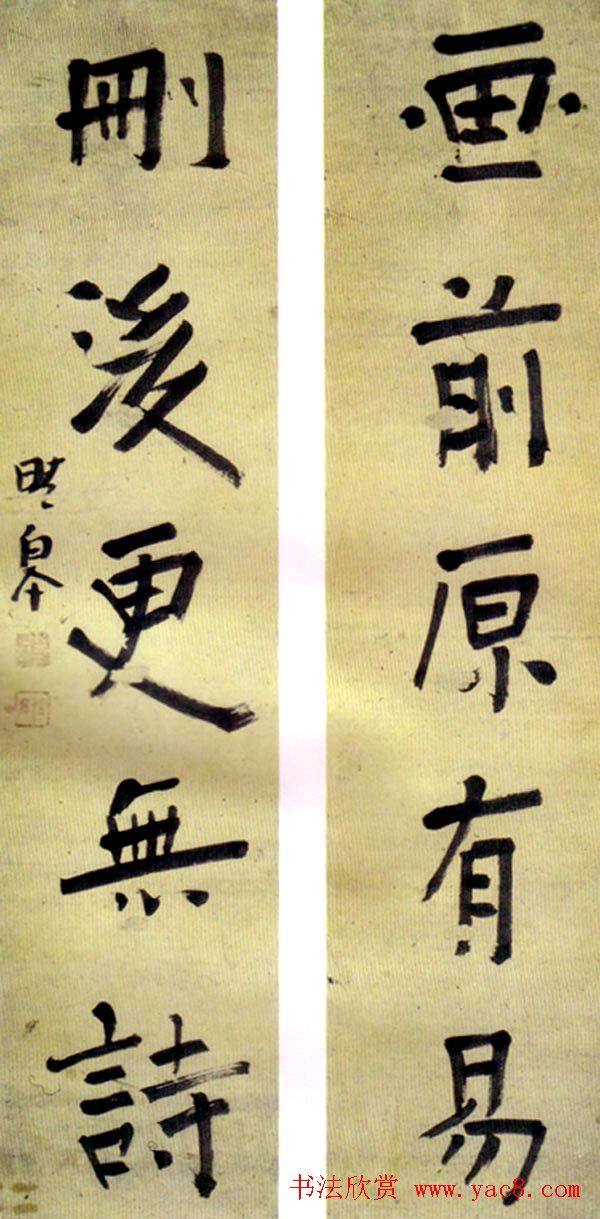 画前原有易
刪後更無詩
書法欣赏 www.yac8.com